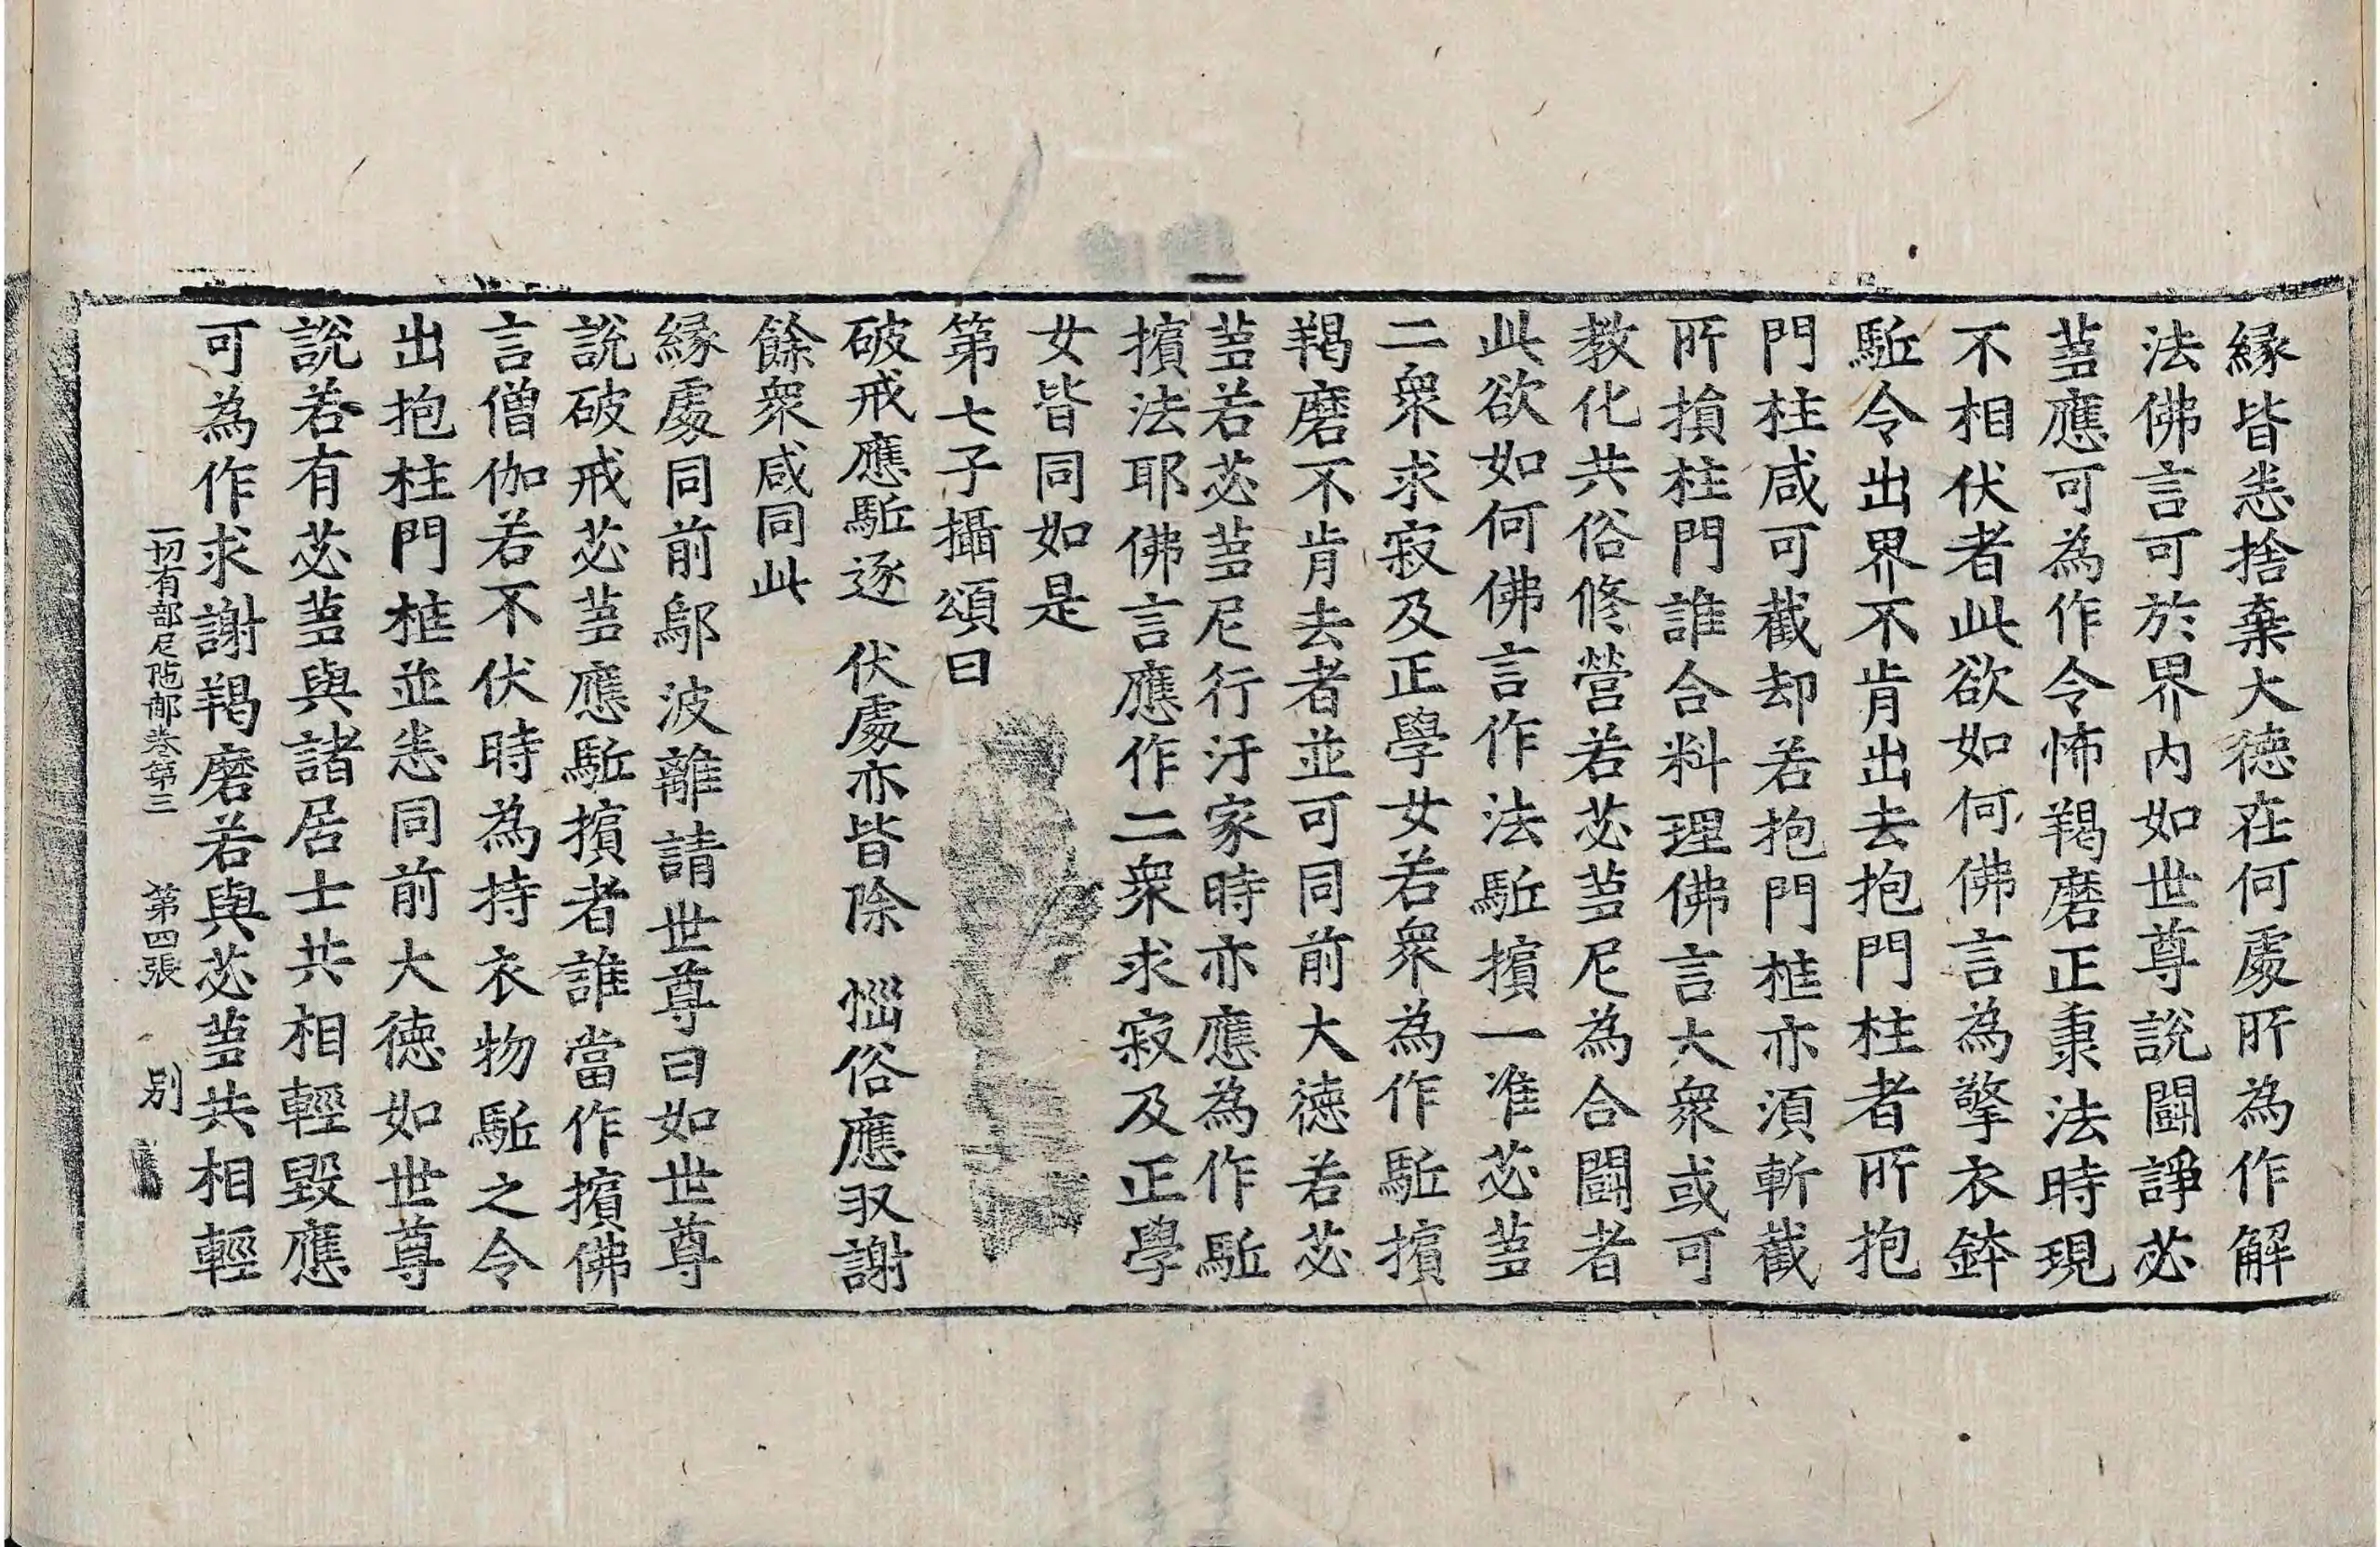 緣皆悉捨棄大德在何處所為作解
法佛言可於界内如世尊說鬪諍苾
芻應可為作令怖羯磨正秉法時現
不相伏者此欲如何佛言為擎衣鉢
駈令出界不肯出去抱門柱者所抱
門柱咸可截却若抱門框亦湏斬截
所損柱門誰合料理佛言大衆或可
教化共俗修營若苾芻尼為合鬪者
此欲如何佛言作法駈擯一准苾芻
二衆求寂及正學女若衆為作駈擯
羯磨不肯去者並可同前大德若苾
芻若苾芻尼行汙家時亦應為作駈
擯法耶佛言應作二衆求寂及正學
女皆同如是
第七子攝頌曰
破戒應駈逐　伏處亦皆除　惱俗應収謝
餘衆咸同此
緣處同前鄔波離請世尊曰如世尊
說破戒苾芻應駈擯者誰當作擯佛
言僧伽若不伏時為持衣物駈之令
出抱柱門框並悉同前大德如世尊
說若有苾芻與諸居士共相輕毀應
可為作求謝羯磨若與苾芻共相輕
一切有部尼陁那卷第三　第四張　別